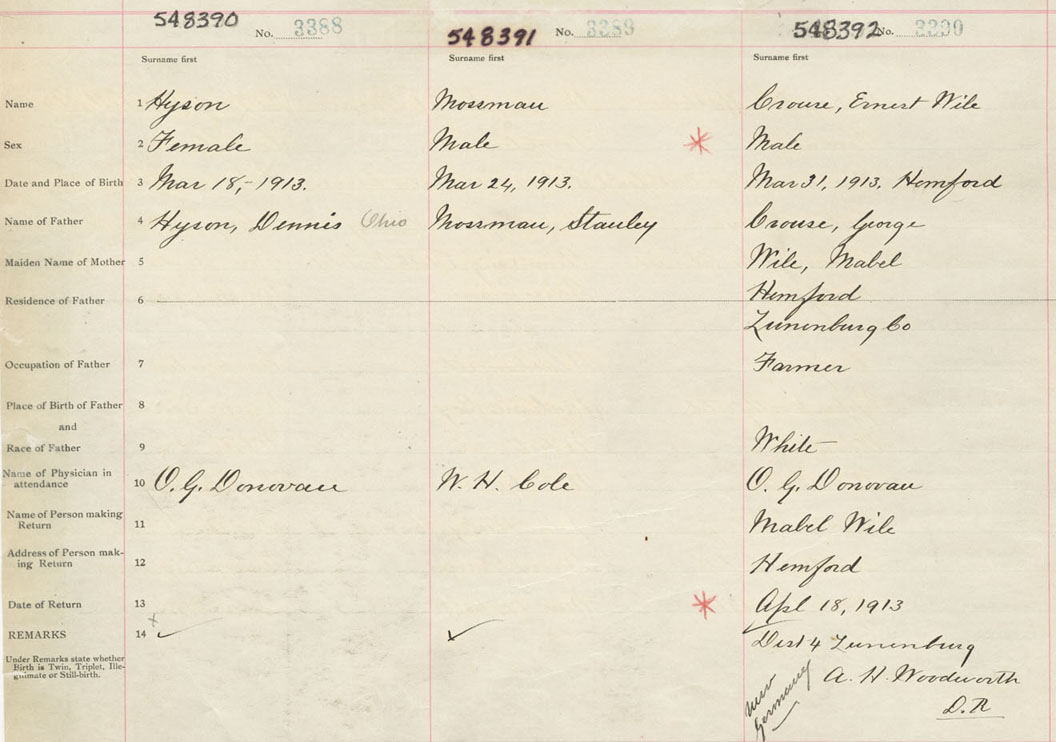 548390 No. 3388 548391 No. 3389 548392 No. 3390
Surname first Surname first Surname first
Name 1 Hyson Mossman Crouse, Ernest Wile
Sex 2 Female Male * Male
Date and Place of Birth 3 Mar 18,- 1913. Mar 24, 1913. Mar 31, 1913. Hemford
Name of Father 4 Hyson, Dennis Ohio Mossman, Stanley Crouse, George
Maiden Name of Mother 5 Wile, Mabel
Residence of Father 6 Hemford
Lunenburg Co
Occupation of Father 7 Farmer
Place of Birth of Father 8
and
Race of Father 9 White
Name of Physician in
attendance 10 O. G. Donovan W. H. Cole O. G. Donovan
Name of Person making
Return 11 Mabel Wile
Address of Person mak-
ing Return 12 Hemford
Date of Return 13 * Apl 18, 1913
REMARKS 14 ✓ ✓ Dist 4 Lunenburg
Under Remarks state whether
Birth is Twin, Triplet, Ille-
gitimate or Still-birth.
A. H. Woodworth
D. R
New
Germany